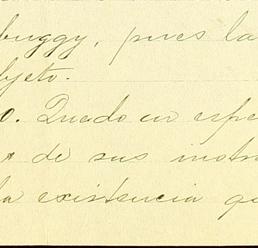 buggy, pues la
bjeto.
o. Quedo en espe
de sus instru
la existencia qu